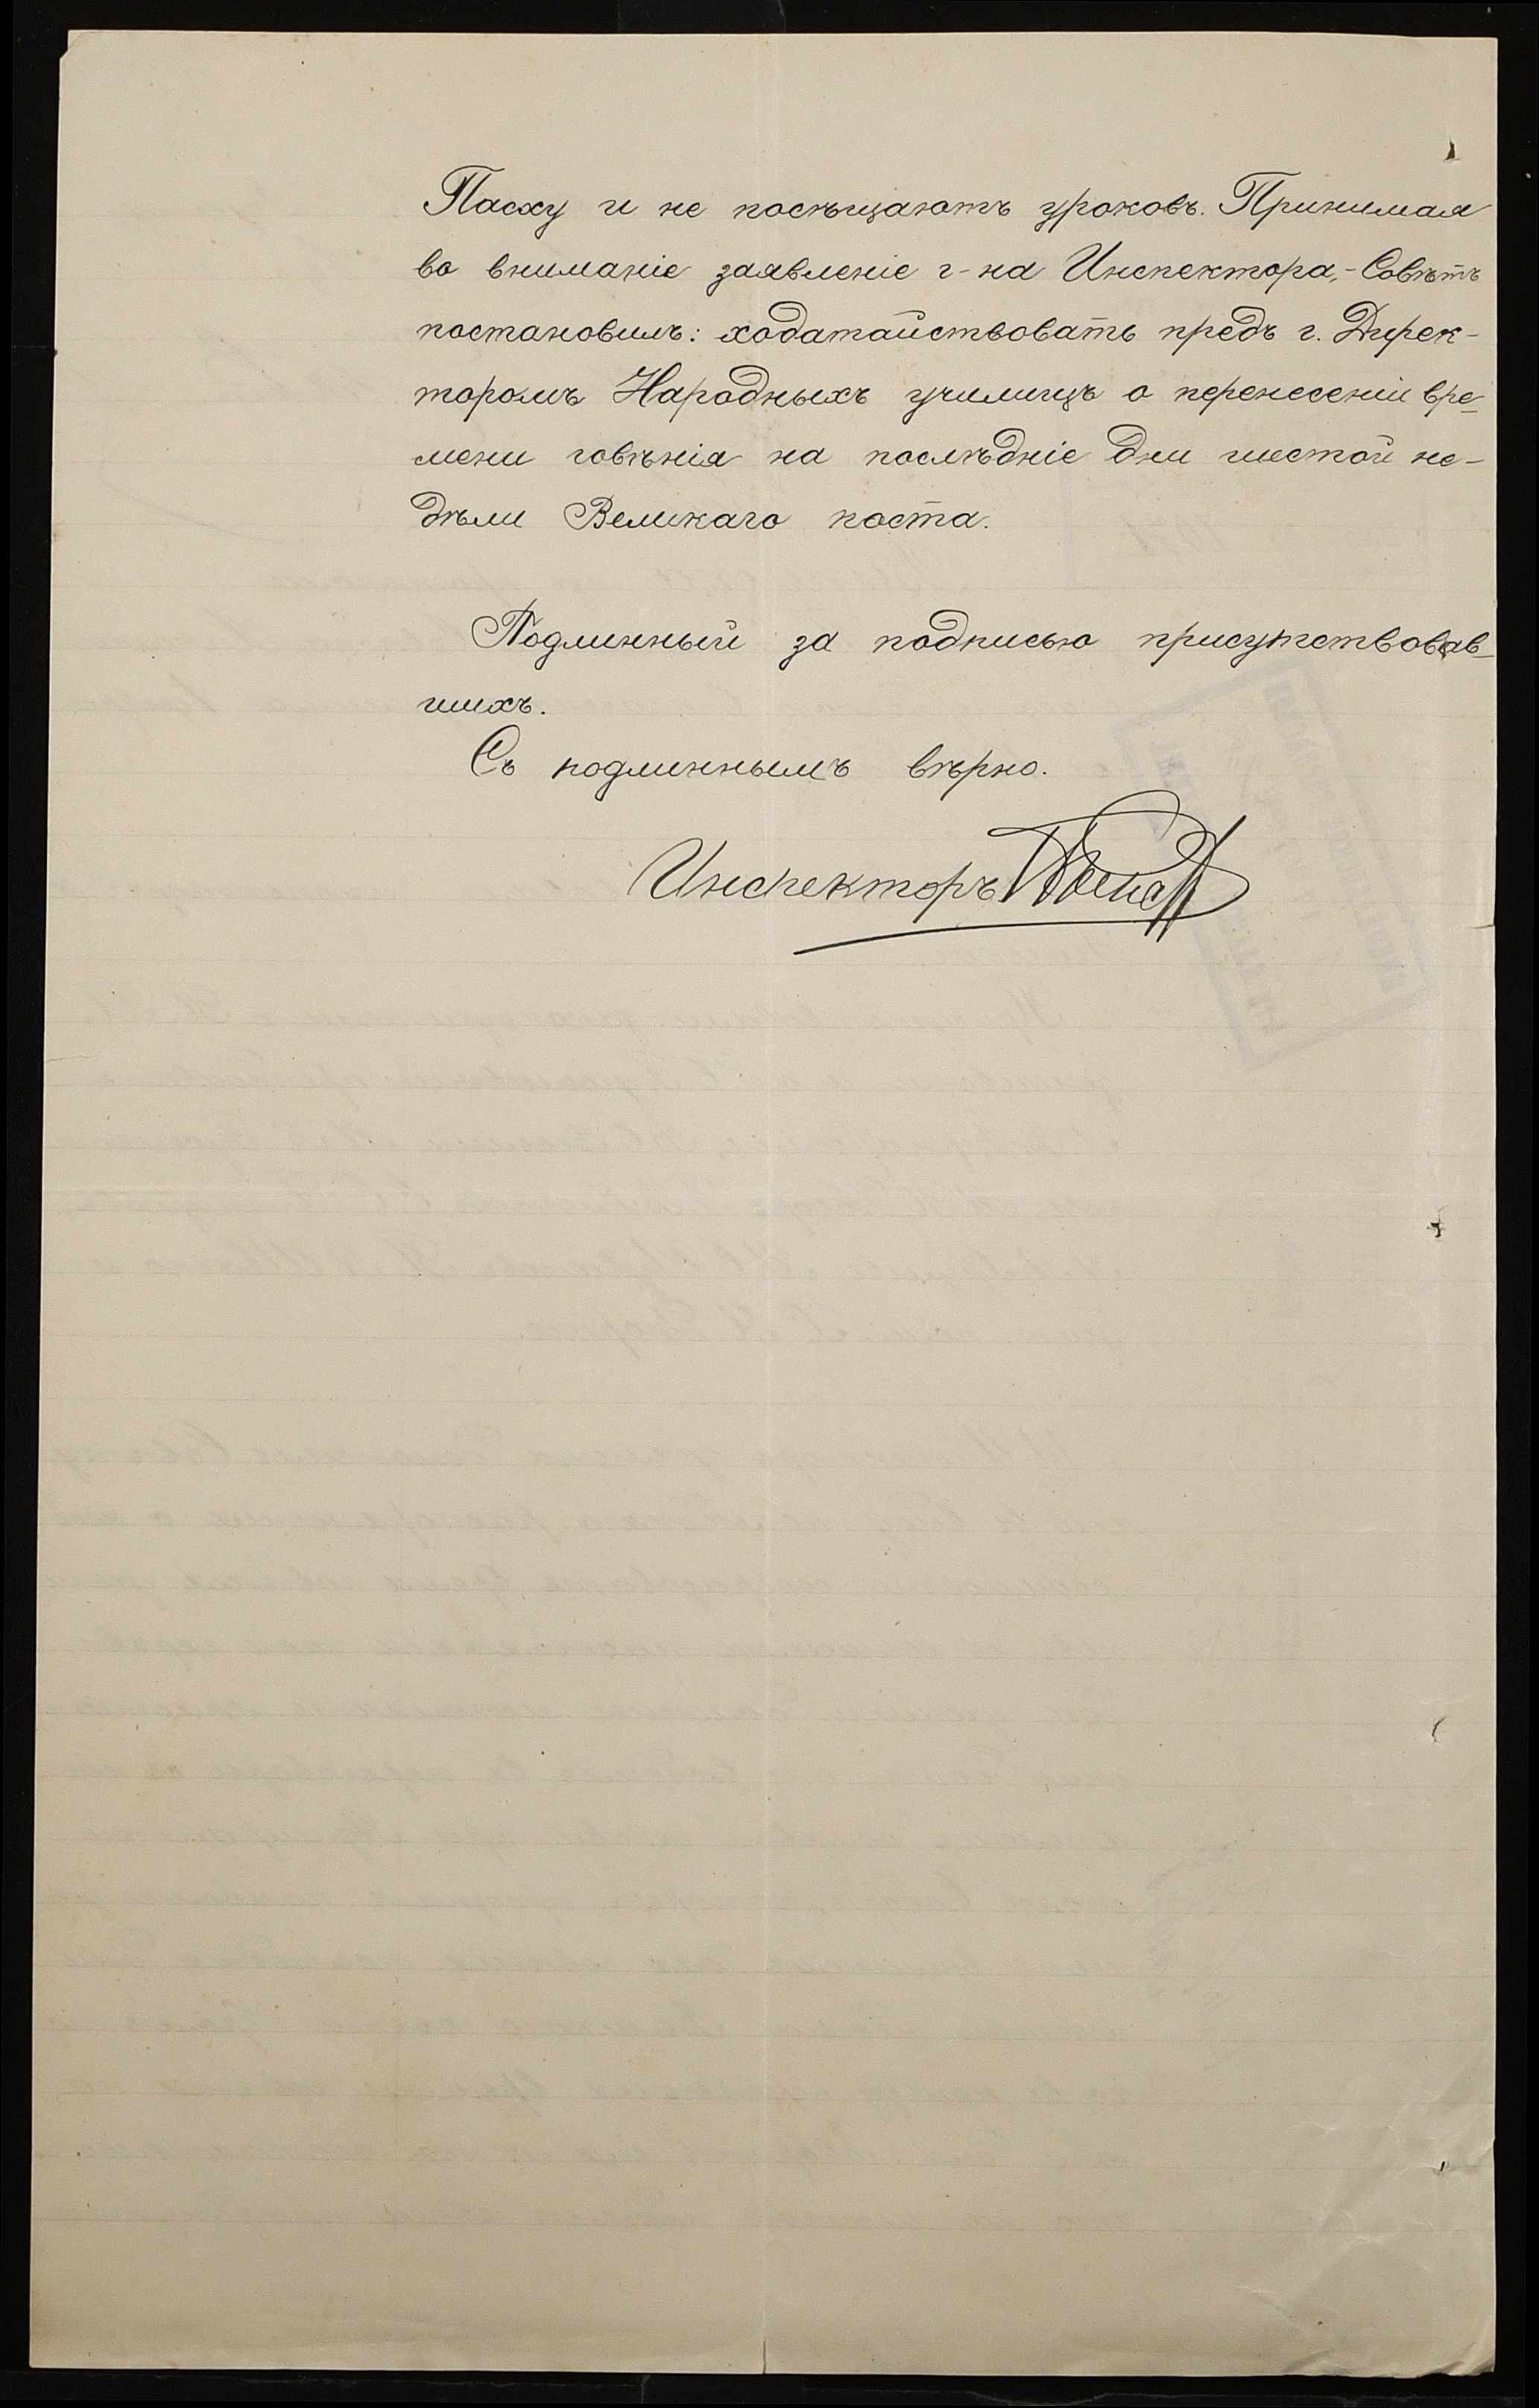 Пасху и не посѣщаютъ уроковъ. Принимая
во вниманіе заявленіе г-на Инспектора,-Совѣтъ
постановилъ: ходатайствовать предъ г. Дирек-
торомъ Народныхъ училищъ о перенесеніи вре-
мени говѣнія на послѣдніе дни шестой не-
дѣли Великаго поста.
Подлинный за подписью присутствовав-
шихъ.
Съ подлиннымъ вѣрно.
Инспекторъ